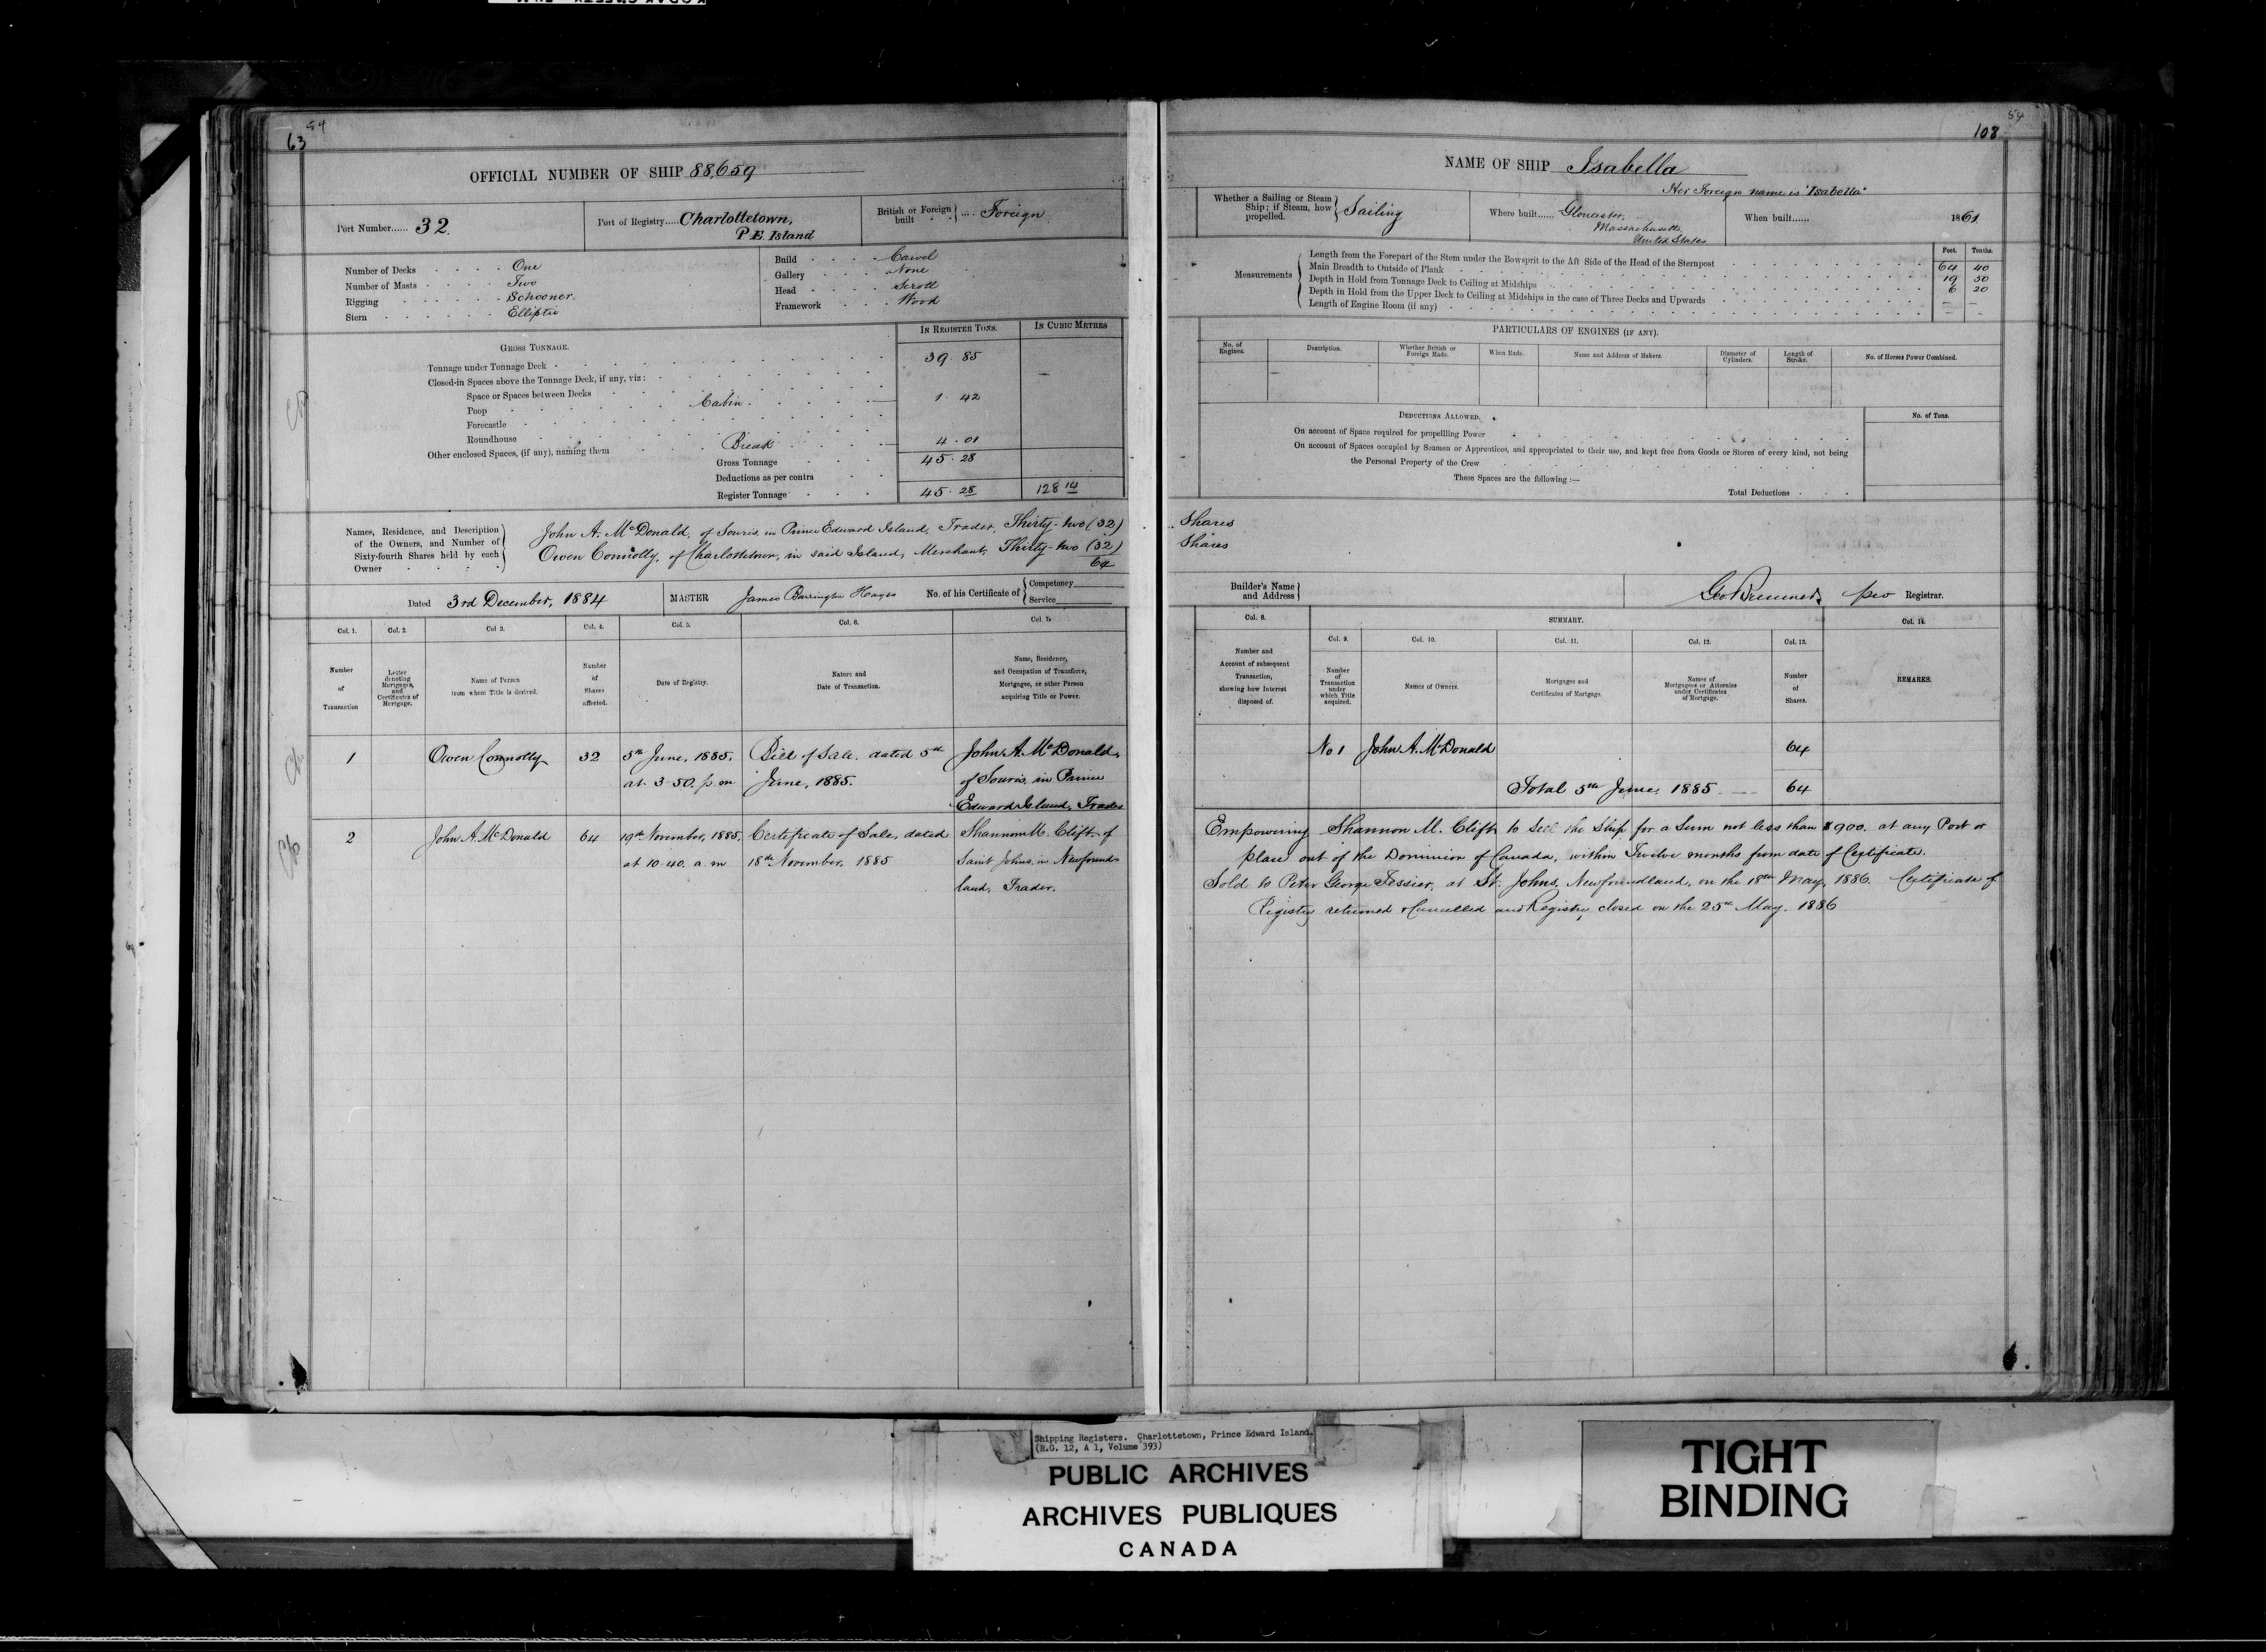 54
63
OFFICIAL NUMBER OF SHIP 88,659
Port Number...... 32.
Port of Registry..... Charlottetown,
P E. Island
British or Foreign built .... Foreign
Number of Decks One
Number of Masts Two
Rigging Schooner
Stern Elliptic
Build Carvel
Gallery None
Head Scroll
Framework Wood
GROSS TONNAGE.
IN REGISTER TONS.
IN CUBIC METRES
Tonnage under Tonnage Deck 39. 85
Closed-in Spaces above the Tonnage Deck, if any, viz:
Space or Spaces between Decks
Poop Cabin. 1. 42
Forecastle
Roundhouse
Other enclosed Spaces, (if any), naming them Break 4. 01
Gross Tonnage 45. 28
Deductions as per contra
Register Tonnage 45. 28 128 14
Names, Residence, and Description
of the Owners, and Number of
Sixty-fourth Shares held by each
Owner
John A. McDonald, of Souris, in Prince Edward Island, Trader, Thirty-two (32)
Owen Connolly, of Charlottetown, in said Island, Merchant, Thirty-two (32)
64
Dated 3rd December, 1884
MASTER James Barrington Hayes
No. of his Certificate of
Competency
Service
Col. 1. Col. 2. Col 3. Col. 4. Col. 5. Col. 6. Col. 7.
Number of Transaction
Letter denoting Mortgages, and Certificates of Mortgage.
Name of Person from whom Title is derived.
Number of Shares affected.
Date of Registry.
Nature and Date of Transaction.
Name, Residence, and Occupation of Transferee, Mortgagee, or other Person acquiring Title or Power.
1 Owen Connolly 32 5th June, 1885. Bill of Sale. dated 5th John A. McDonald,
at 3.50. p.m June, 1885. of Souris, in Prince
Edward Island, Trader
2 John A. McDonald 64 19th November, 1885, Certificate of Sale, dated Shannon M. Clift of
at 10.40. a.m 18th November, 1885 Saint Johns in Newfound-
land, Trader.
54
108
NAME OF SHIP Isabella
Her Foreign name is "Isabella"
Whether a Sailing or Steam
Ship; if Steam, how
propelled.
Sailing
Where built...... Gloucester,
Massachusetts,
United States
When built...... 1861
Feet. Tenths.
Measurements
Length from the Forepart of the Stem under the Bowsprit to the Aft Side of the Head of the Sternpost 64 40
Main Breadth to Outside of Plank 19 50
Depth in Hold from Tonnage Deck to Ceiling at Midships 6 20
Depth in Hold from the Upper Deck to Ceiling at Midships in the case of Three Decks and Upwards
Length of Engine Room (if any)
PARTICULARS OF ENGINES (IF ANY).
No. of Engines.
Description.
Whether British or Foreign Made.
When Made.
Name and Address of Makers.
Diameter of Cylinders.
Length of Stroke.
No. of Horses Power Combined.
DEDUCTIONS ALLOWED.
No. of Tons.
On account of Space required for propellling Power
On account of Spaces occupied by Seamen or Apprentices, and appropriated to their use, and kept free from Goods or Stores of every kind, not being
the Personal Property of the Crew
These Spaces are the following :—
Total Deductions
Shares
Shares
Builder's Name
and Address
Registrar.
Col. 8.
SUMMARY.
Col. 14.
Col. 9. Col. 10. Col. 11. Col. 12. Col. 13.
Number and Account of subsequent Transaction, showing how Interest disposed of.
Number of Transaction under which Title acquired.
Names of Owners.
Mortgages and Certificates of Mortgage.
Names of Mortgagees or Attornies under Certificates of Mortgage.
Number of Shares.
REMARKS.
No 1 John A. McDonald 64
Total 5th June, 1885 64
Empowering Shannon M. Clift to Sell the Ship for a Sum not less than $900. at any Port or
place out of the Dominion of Canada, within Twelve months from date of Certificate.
Sold to Peter George Tessier, at St. Johns, Newfoundland, on the 18th May, 1886. Certificate of
Registry returned & Cancelled and Registry closed on the 25th May. 1886
Shipping Registers. Charlottetown, Prince Edward Island.
(R.G. 12, A 1, Volume 393)
PUBLIC ARCHIVES
ARCHIVES PUBLIQUES
CANADA
TIGHT
BINDING